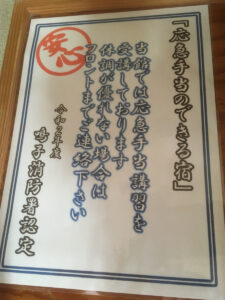 「応急手当のできる宿」
当館では応急手当講習を
受講しております
体調が優れない場合は
フロントまでご連絡下さい
令和2年度
鳴子消防署認定
安心